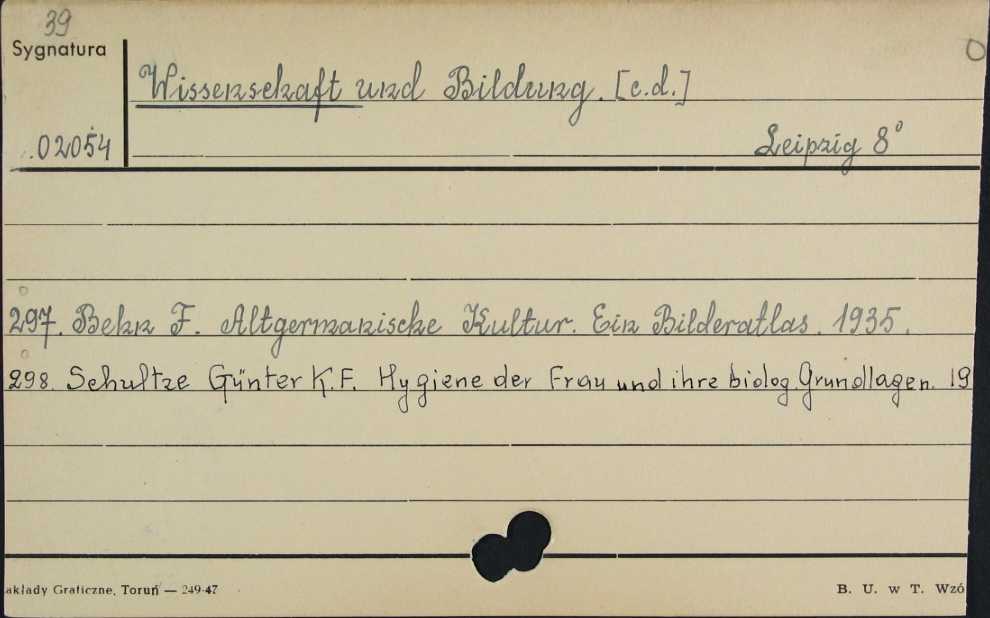 39
Sygnatura
02054
Wissenschaft und Bildung. [c.d.]
Leipzig 8°
297. Behn F. Altgermanische Kultur. Ein Bilderatlas. 1935.
298. Schultze Günter K.F. Hygiene der Frau und ihre biolog. Grundlagen. 19
akłady Graficzne, Toruń — 249-47
B. U. w T. Wzó